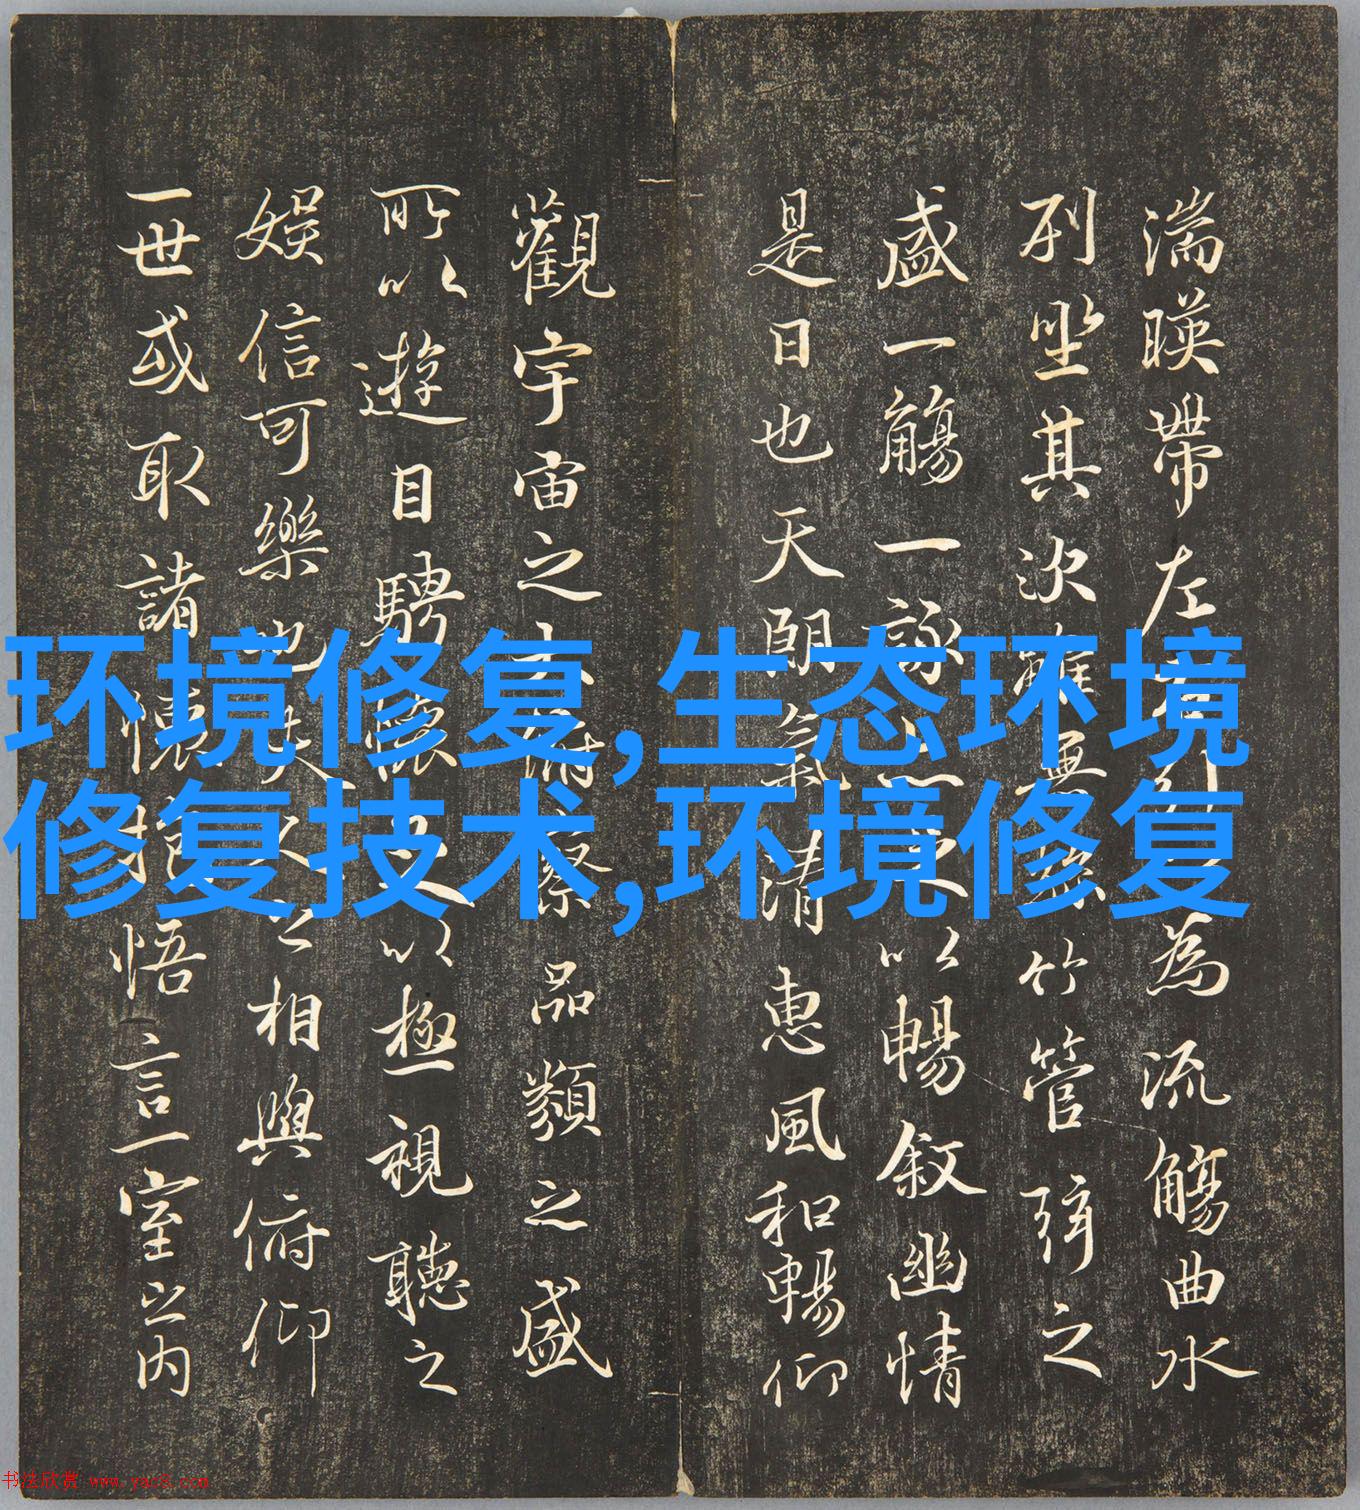 湍暎帶左右引以為流觴曲水
列坐其次雖無絲竹管弦之
盛一觴一詠亦足以暢敘幽情
是日也天朗氣清惠風和暢仰
觀宇宙之大俯察品類之盛
所以遊目騁懷足以極視聽之
娛信可樂也夫人之相與俯仰
一世或取諸懷抱悟言一室之内
环境修复,生态环境
修复技术,环境修复
书法欣赏 www.yac8.com